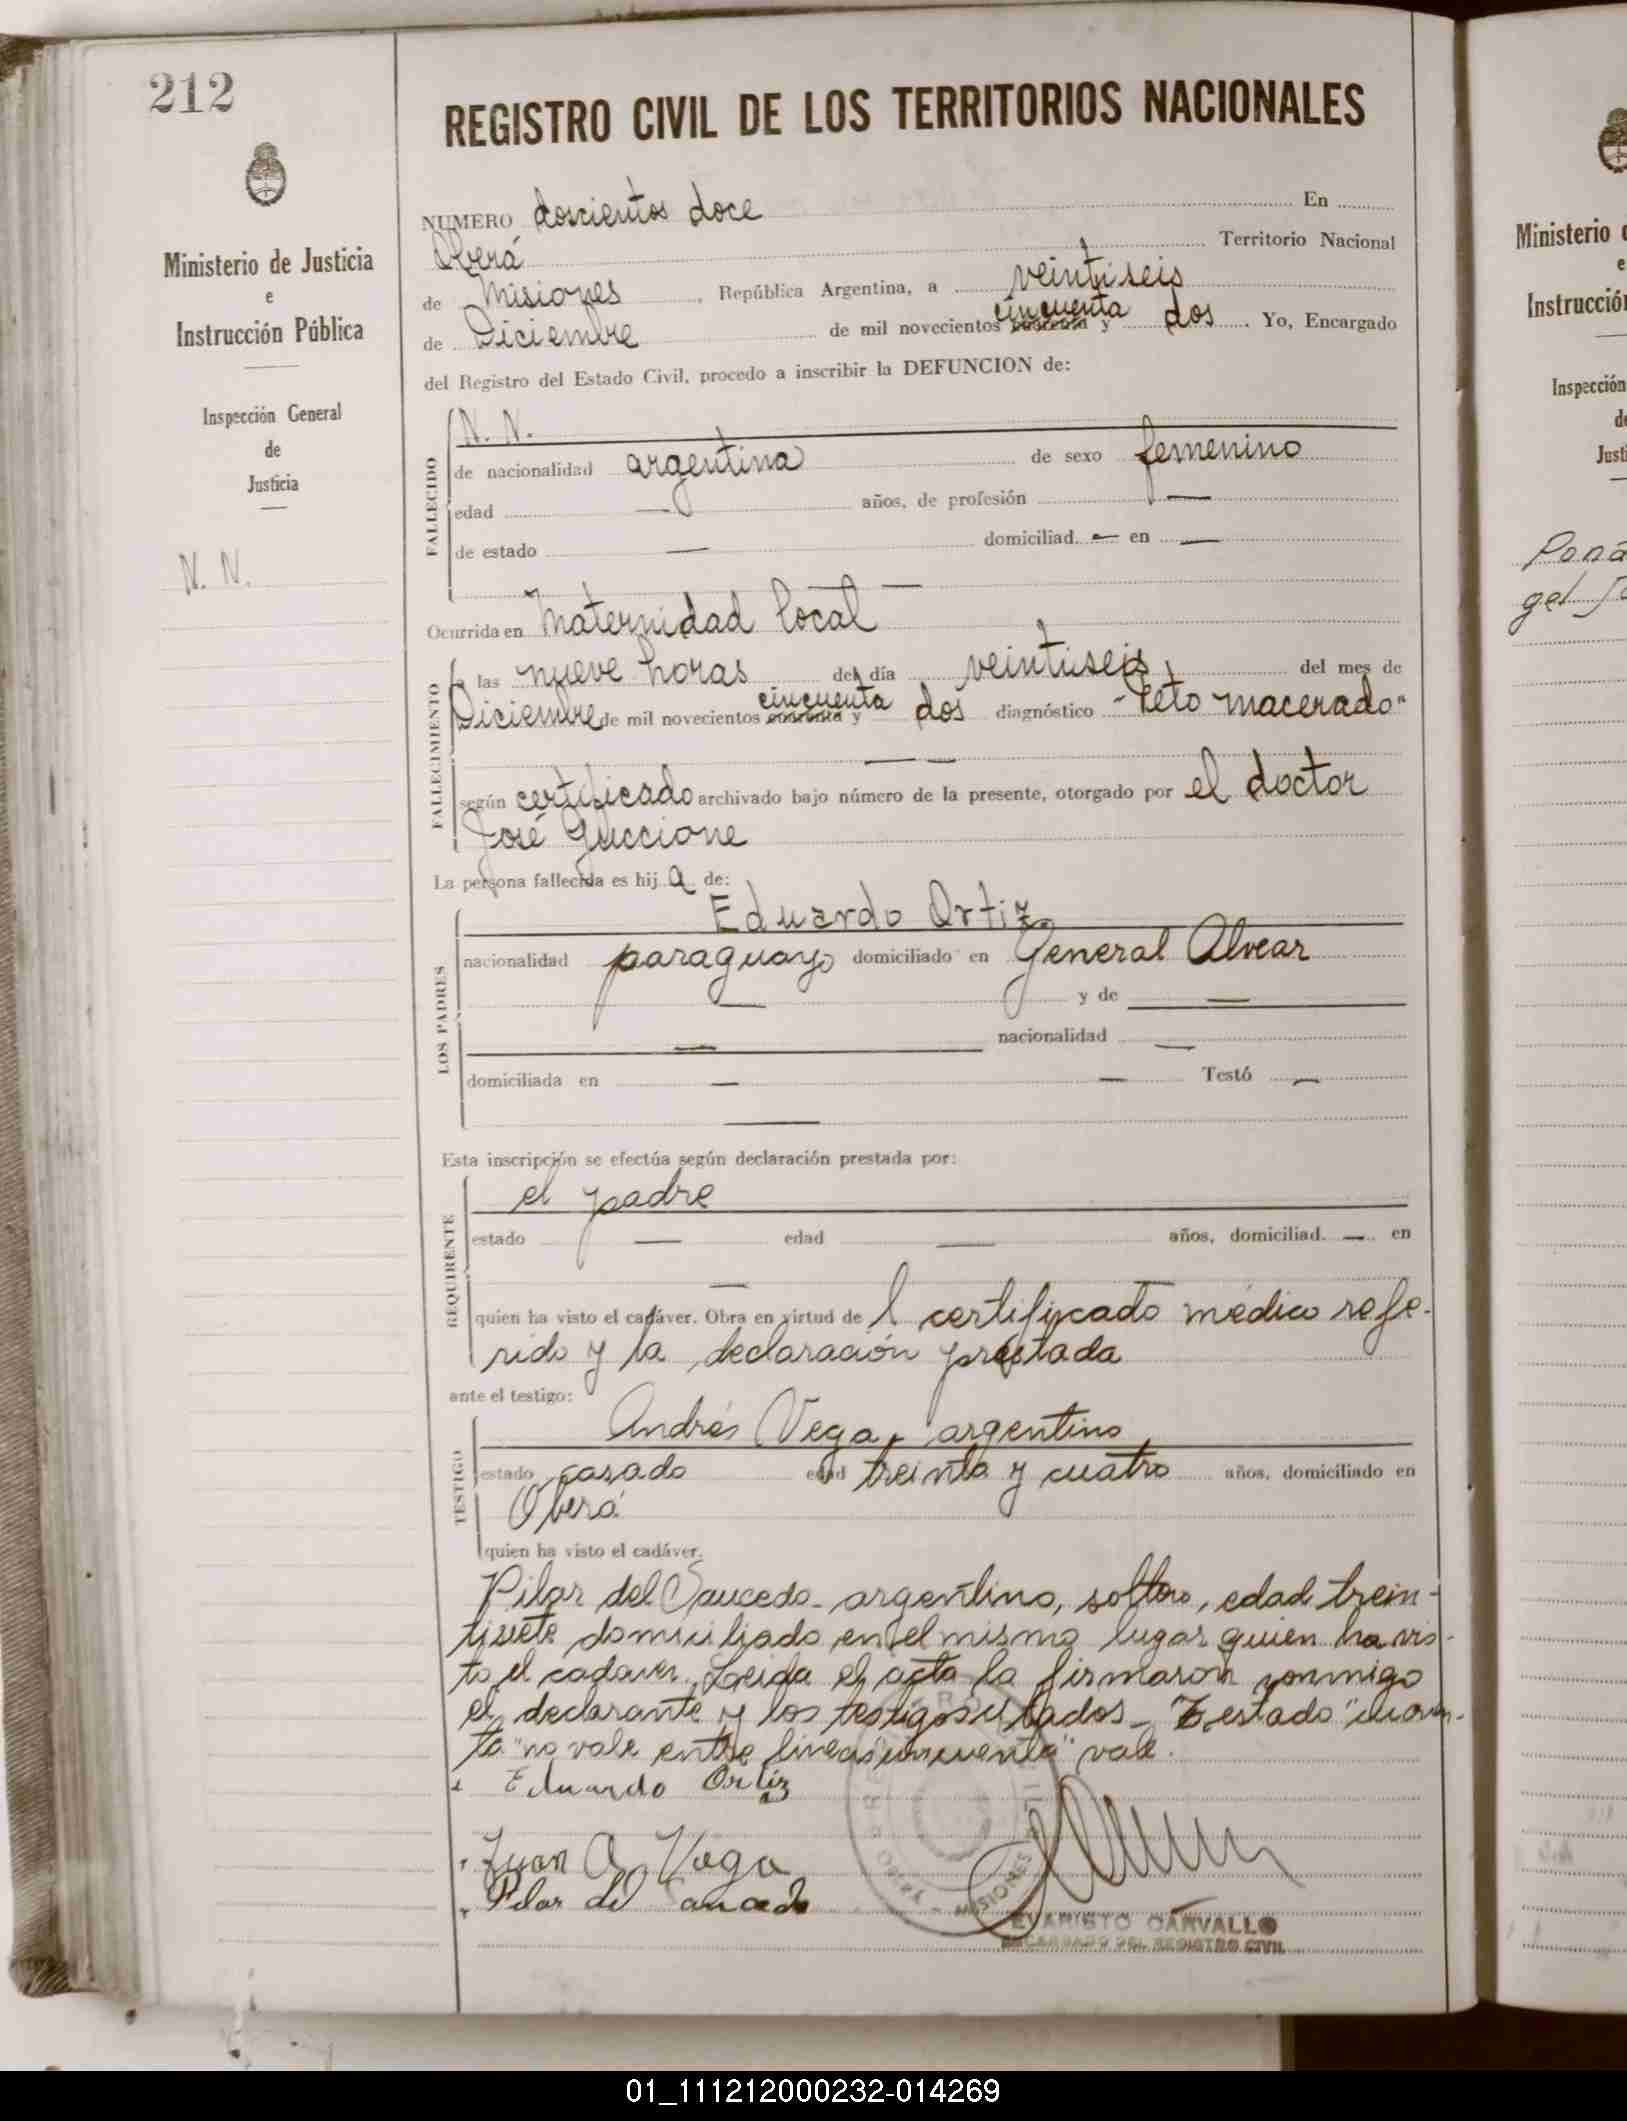 212
REGISTRO CIVIL DE LOS TERRITORIOS NACIONALES
Ministerio de Justicia
e
Instrucción Pública
Inspección General
de
Justicia
N. N.
NUMERO doscientos doce En
Oberá Territorio Nacional
de Misiones, República Argentina, a veintiseis
de Diciembre de mil novecientos cincuenta y dos. Yo, Encargado
del Registro del Estado Civil, procedo a inscribir la DEFUNCION de:
FALLECIDO
N. N.
de nacionalidad argentina de sexo femenino
edad — años, de profesión —
de estado — domiciliad. — en —
—
Ocurrida en Maternidad local
FALLECIMIENTO
a las nueve horas del día veintiseis del mes de
Diciembre de mil novecientos cincuenta y dos diagnóstico "Feto macerado"
— —
según certificado archivado bajo número de la presente, otorgado por el doctor
José Guccione
La persona fallecida es hij a de:
LOS PADRES
Eduardo Ortiz
nacionalidad paraguayo domiciliado en General Alvear
— y de —
— nacionalidad —
domiciliada en — — Testó —
—
Esta inscripción se efectúa según declaración prestada por:
REQUIRENTE
el padre
estado — edad — años, domiciliad. — en
—
quien ha visto el cadáver. Obra en virtud de l certificado médico refe-
rido y la declaración prestada
ante el testigo:
TESTIGO
Andrés Vega, argentino
estado casado edad treinta y cuatro años, domiciliado en
Oberá
quien ha visto el cadáver.
Pilar del Saucedo - argentino, soltero, edad trein-
tisiete domiciliado en el mismo lugar quien ha vis-
to el cadaver. Leida el acta la firmaron conmigo
el declarante y los testigos citados - Testado "cuaren-
ta" no vale entre lineas "cincuenta" vale.
Eduardo Ortiz
Juan A. Vega
Pilar del Saucedo
MISIONES
EVARISTO CARVALLO
ENCARGADO DEL REGISTRO CIVIL
Ministerio
e
Instrucción
Inspección
Justi
01_111212000232-014269